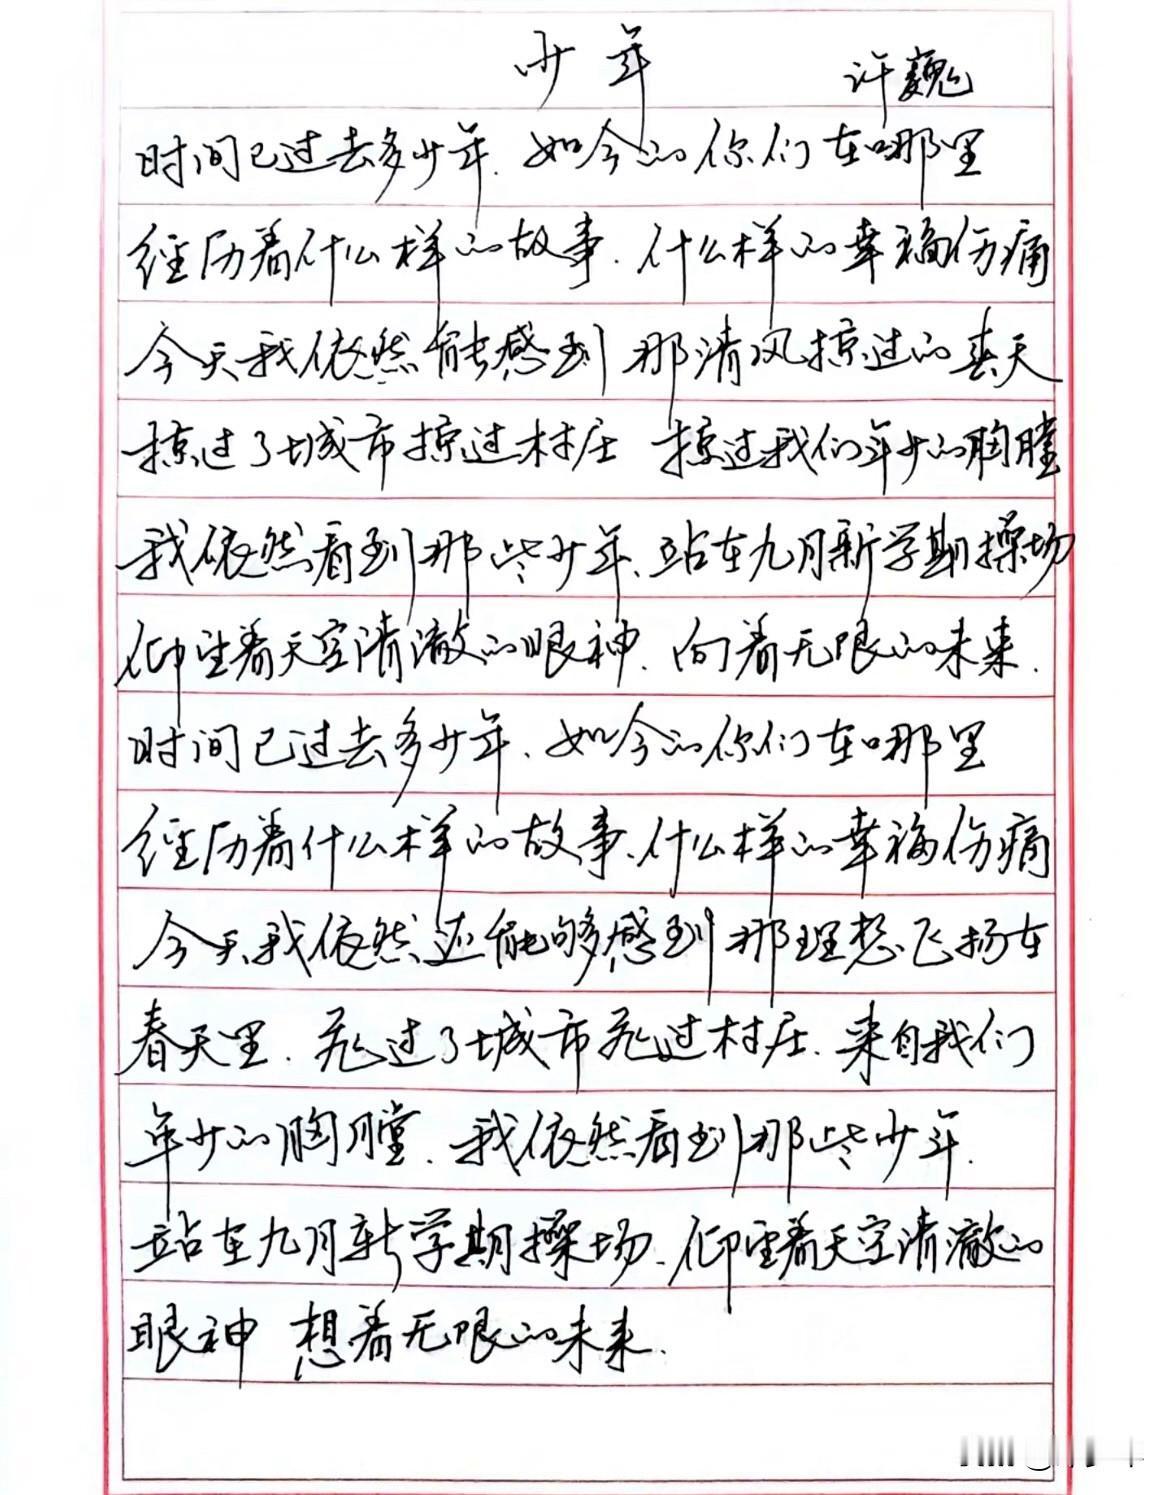 少年 许巍
时间已过去多少年.如今的你们在哪里
经历着什么样的故事.什么样的幸福伤痛
今天我依然能感到 那清风掠过的春天
掠过了城市掠过村庄 掠过我们年少的胸膛
我依然看到那些少年.站在九月新学期操场
仰望着天空清澈的眼神.向着无限的未来.
时间已过去多少年.如今的你们在哪里
经历着什么样的故事.什么样的幸福伤痛
今天我依然还能够感到那理想飞扬在
春天里.飞过了城市飞过村庄.来自我们
年少的胸膛.我依然看到那些少年.
站在九月新学期操场.仰望着天空清澈的
眼神 想着无限的未来.